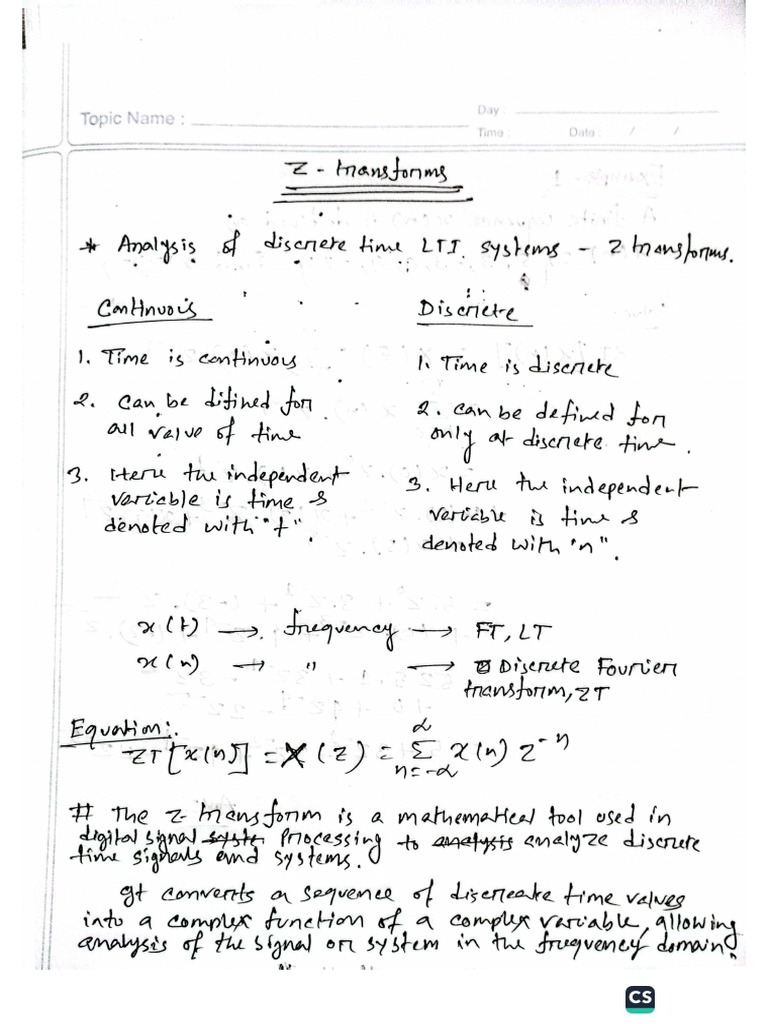 Topic Name :
Day :
Time :
Date : / /
Z - transforms
* Analysis of discrete time LTI systems - Z transforms.
Continuous
Discrete
1. Time is continuous
1. Time is discrete
2. Can be difined for
all value of time
2. can be defined for
only at discrete time .
3. Here the independent
variable is time &
denoted with "t".
3. Here the independent
variable is time &
denoted with "n".
x(t) → frequency → FT, LT
x(n) → " → Discrete Fourier
transform, ZT
Equation:.
ZT[x(n)] = X(z) = ∑ x(n) z^-n
α
n=-α
# The Z-transform is a mathematical tool used in
digital signal processing to analysis analyze discrete
time signals and systems.
It converts a sequence of discreate time values
into a complex function of a complex variable, allowing
analysis of the signal or system in the frequency domain.
CS